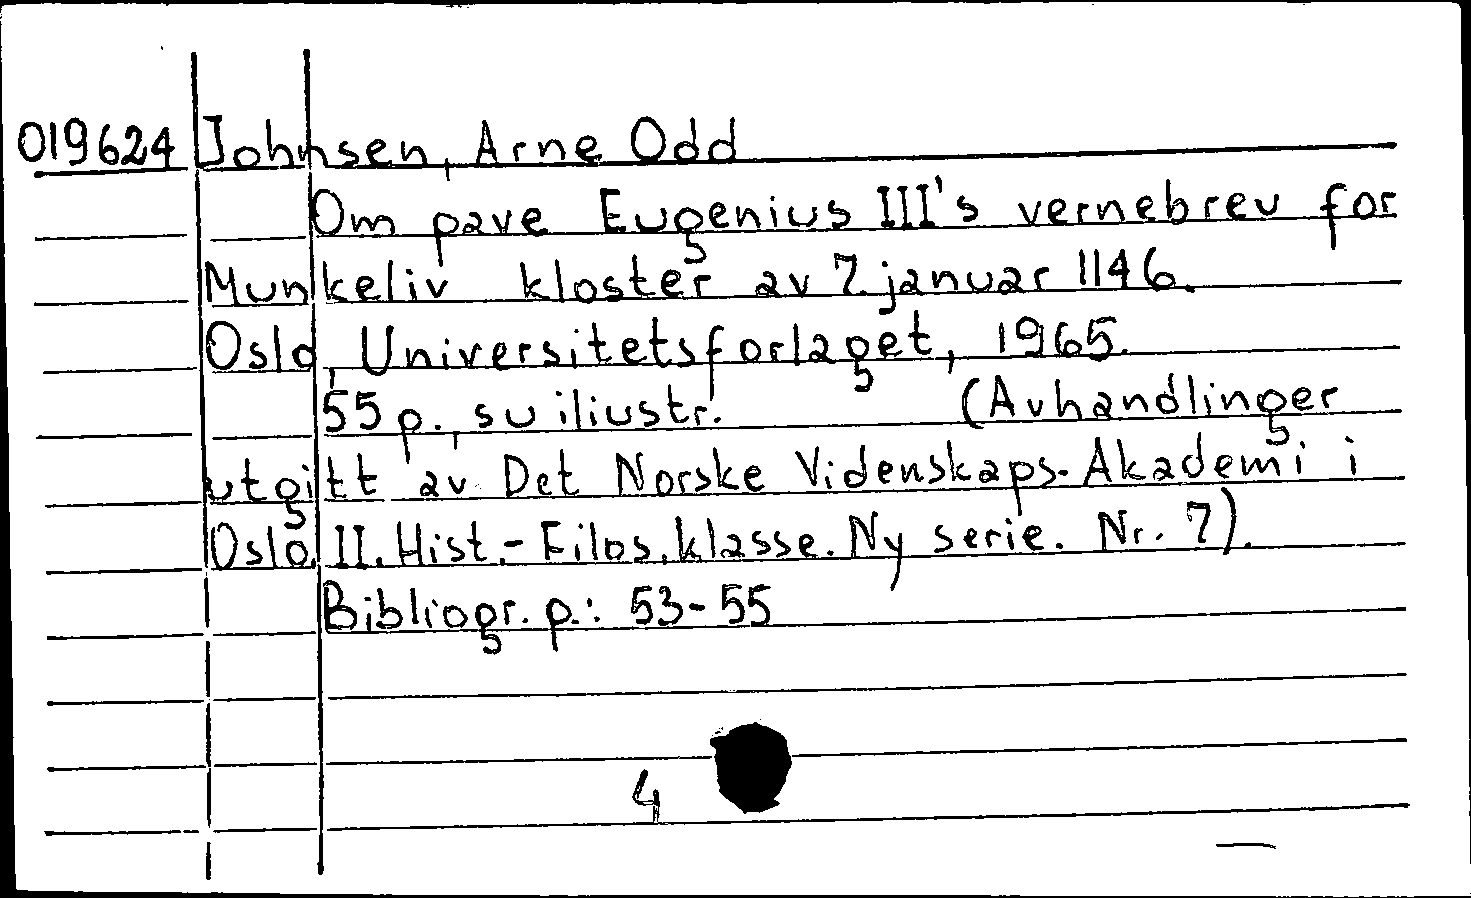 019624 Johnsen, Arne Odd
Om pave Eugenius III's vernebrev for
Munkeliv kloster av 7. januar 1146.
Oslo, Universitetsforlaget, 1965.
55 p., su iliustr. (Avhandlinger
utgitt av Det Norske Videnskaps-Akademi i
Oslo. II. Hist.- Filos. klasse. Ny serie. Nr. 7).
Bibliogr. p.: 53-55
4